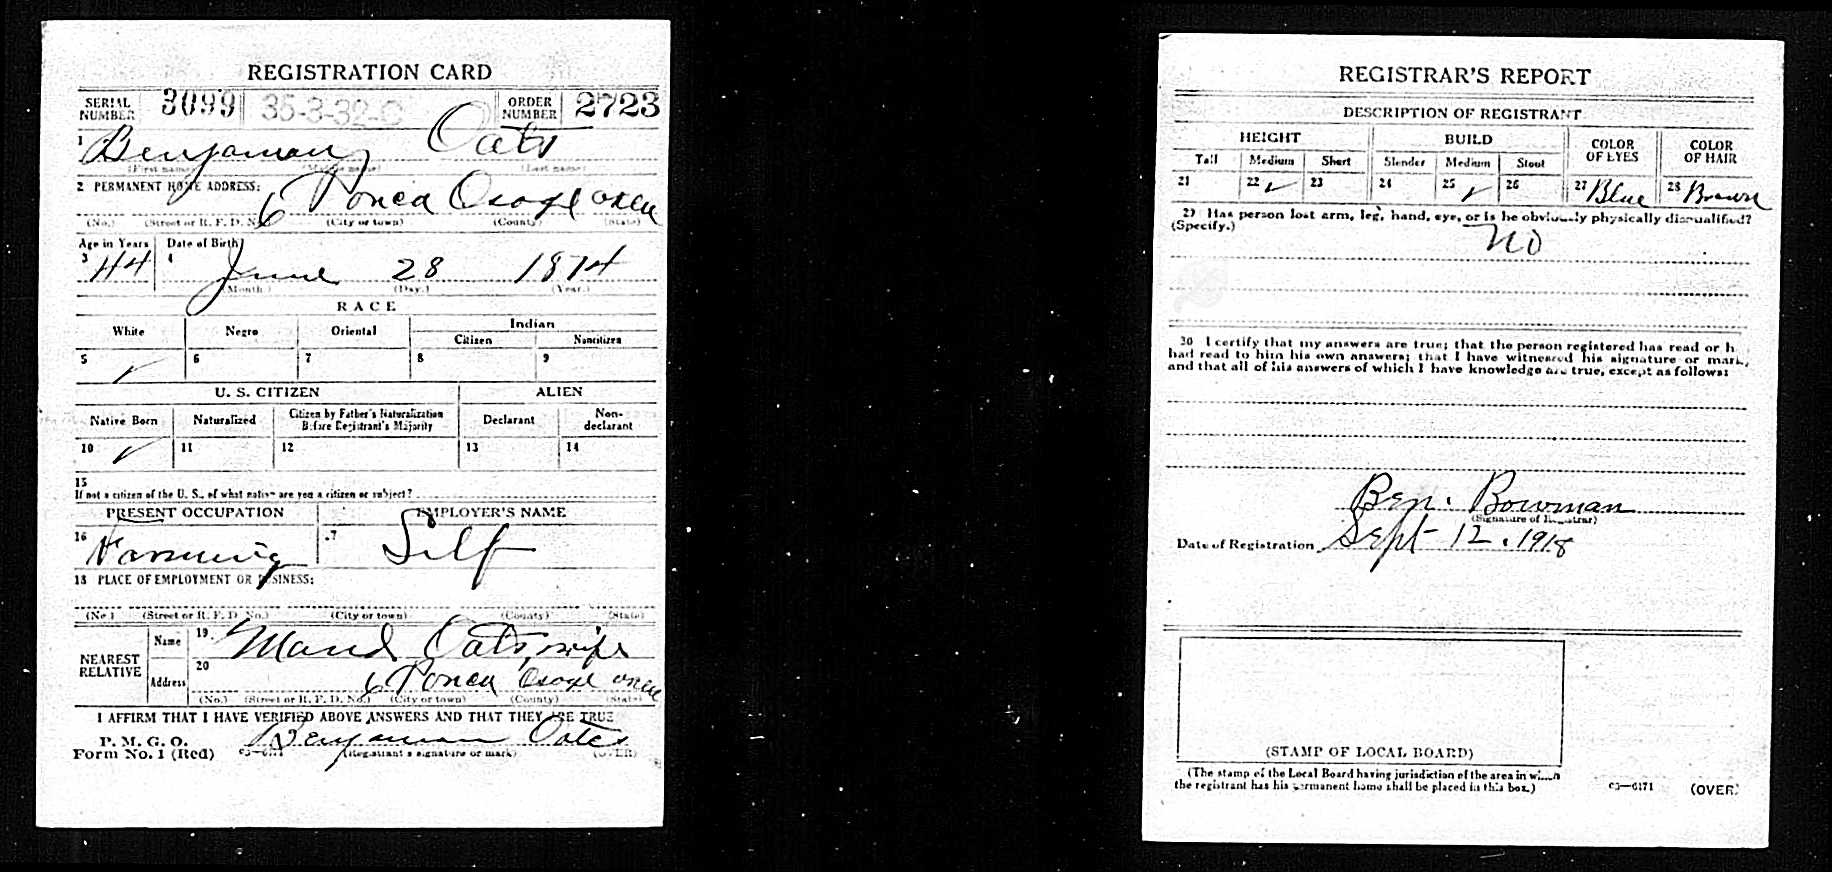 REGISTRATION CARD
SERIAL NUMBER 3099 35-3-32-C ORDER NUMBER 2723
1 Benjaman Oats
(First name) (Middle name) (Last name)
2 PERMANENT HOME ADDRESS:
6 Ponca Osage
(No.) (Street or R. F. D. No.) (City or town) (County) (State)
Age in Years Date of Birth
3 44 4 June 28 1874
(Month.) (Day.) (Year.)
RACE
White Negro Oriental Indian
Citizen Noncitizen
5 ✓ 6 7 8 9
U. S. CITIZEN ALIEN
Native Born Naturalized Citizen by Father's Naturalization Before Registrant's Majority Declarant Non-declarant
10 ✓ 11 12 13 14
15
If not a citizen of the U. S., of what nation are you a citizen or subject?
PRESENT OCCUPATION EMPLOYER'S NAME
16 Farming 17 Self
18 PLACE OF EMPLOYMENT OR BUSINESS:
(No.) (Street or R. F. D. No.) (City or town) (County) (State)
NEAREST RELATIVE
Name 19 Maud Oats, wife
Address 20 6 Ponca Osage
(No.) (Street or R. F. D. No.) (City or town) (County) (State)
I AFFIRM THAT I HAVE VERIFIED ABOVE ANSWERS AND THAT THEY ARE TRUE
P. M. G. O.
Form No. 1 (Red) Benjaman Oats
(Registrant's signature or mark) (OVER)
REGISTRAR'S REPORT
DESCRIPTION OF REGISTRANT
HEIGHT BUILD COLOR OF EYES COLOR OF HAIR
Tall Medium Short Slender Medium Stout
21 22 ✓ 23 24 25 ✓ 26 27 Blue 28 Brown
29 Has person lost arm, leg, hand, eye, or is he obviously physically disqualified?
(Specify.) No
30 I certify that my answers are true; that the person registered has read or h
had read to him his own answers; that I have witnessed his signature or mark,
and that all of his answers of which I have knowledge are true, except as follows:
Ben. Bowman
(Signature of Registrar)
Date of Registration Sept 12. 1918
(STAMP OF LOCAL BOARD)
(The stamp of the Local Board having jurisdiction of the area in which
the registrant has his permanent home shall be placed in this box.)
03—6171 (OVER)